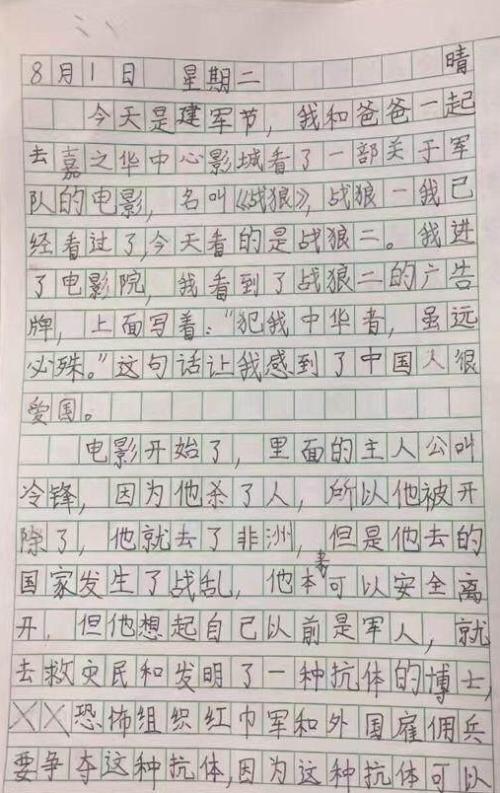 8月1日 星期二 晴
今天是建军节，我和爸爸一起
去嘉之华中心影城看了一部关于军
队的电影，名叫《战狼》，战狼一我已
经看过了，今天看的是战狼二。我进
了电影院，我看到了战狼二的广告
牌，上面写着：“犯我中华者，虽远
必殊。”这句话让我感到了中国人很
爱国。
电影开始了，里面的主人公叫
冷锋，因为他杀了人，所以他被开
除了，他就去了非洲，但是他去的
国家发生了战乱，他本来可以安全离
开，但他想起自己以前是军人，就
去救灾民和发明了一种抗体的博士，
恐怖组织红巾军和外国雇佣兵
要争夺这种抗体，因为这种抗体可以